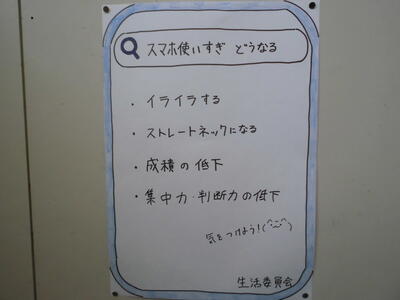 スマホ使いすぎ どうなる
・イライラする
・ストレートネックになる
・成積の低下
・集中力・判断力の低下
気をつけよう!(^ー^)
生活委員会